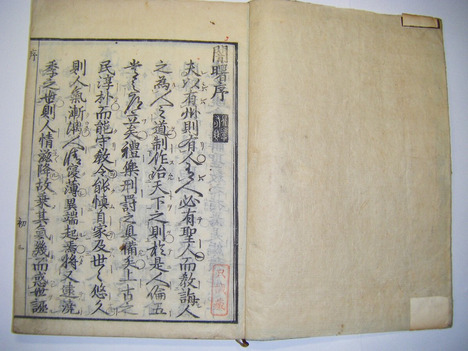 闇曙序
夫以有州則有人有人必有聖人而教誨人
之為人之道制作治天下之則於是人倫五
常之道立矣禮樂刑罰之具備矣上古之
民淳朴而能守教令能慎自家及世之悠久
則人氣漸漓人情寖薄異端起焉將又逮澆
季之世則人情滋降故乘其氣幾而惑世誣
序
初